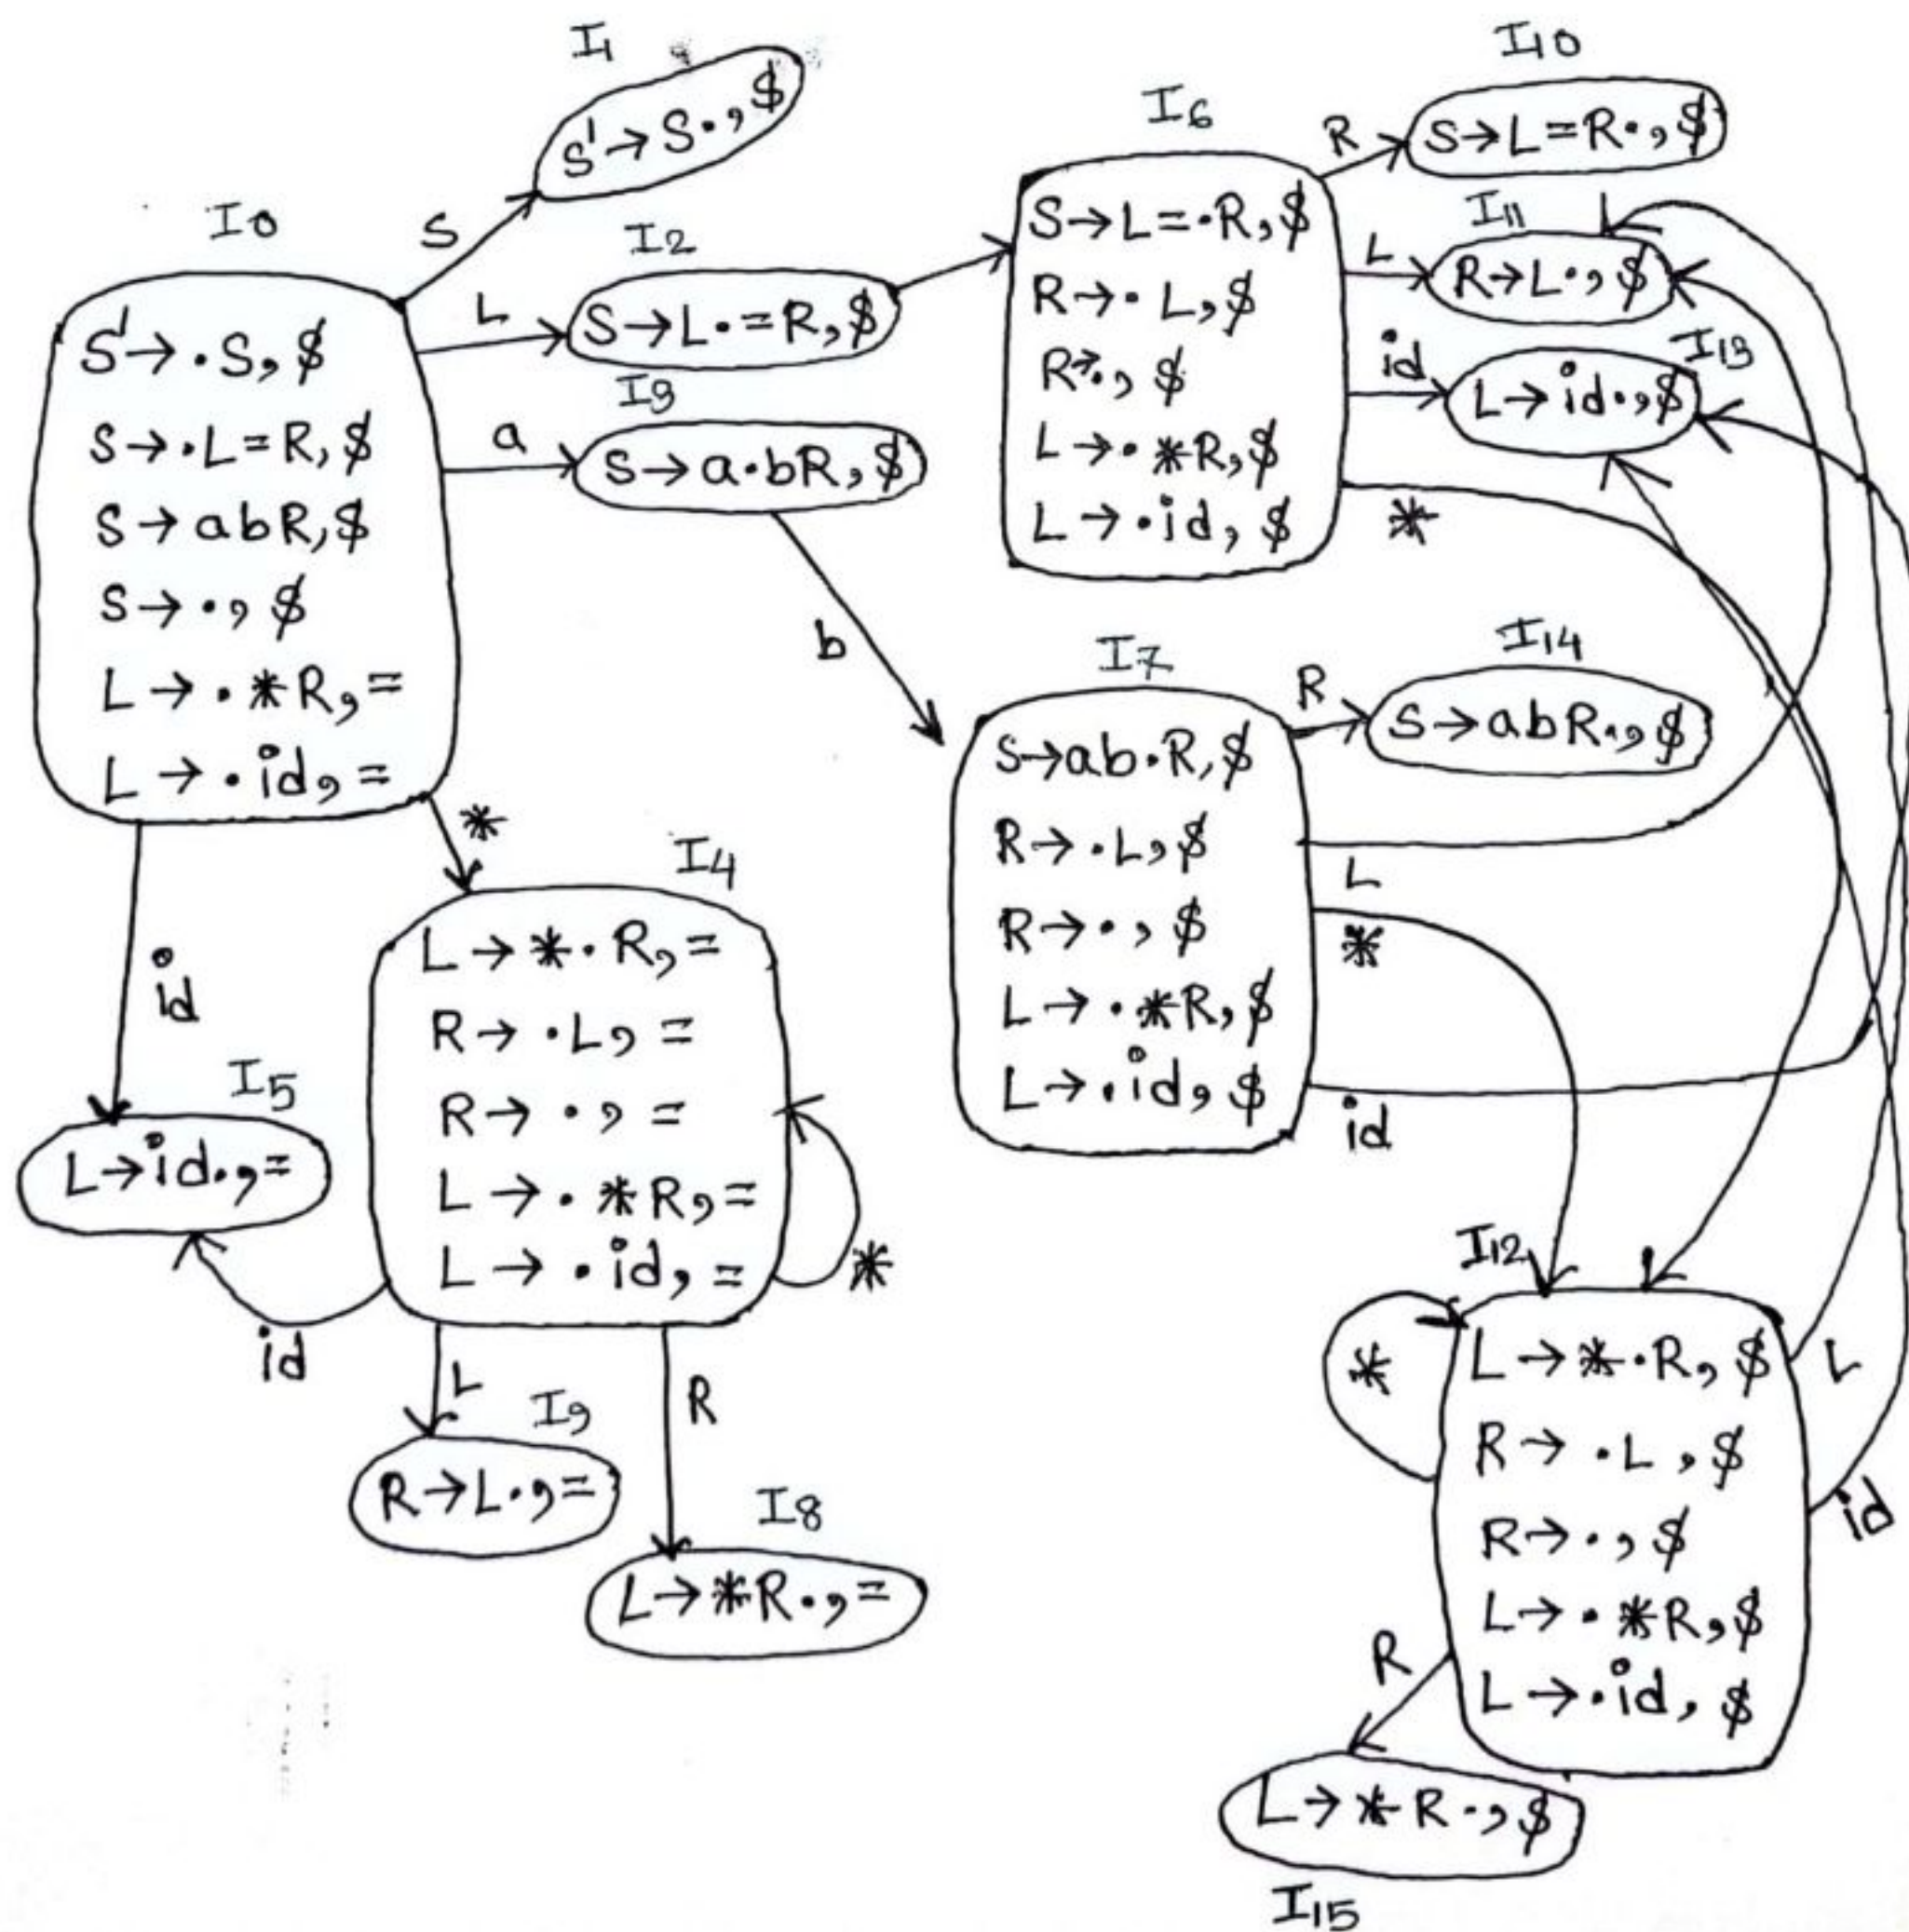 I0
S' → ·S, $
S → ·L=R, $
S → abR, $
S → ·, $
L → ·*R, =
L → ·id, =
S
L
a
*
id
I1
S' → S·, $
I2
S → L·=R, $
I3
S → a·bR, $
b
I4
L → *·R, =
R → ·L, =
R → ·, =
L → ·*R, =
L → ·id, =
*
id
L
R
I5
L → id·, =
I9
R → L·, =
I8
L → *R·, =
I6
S → L=·R, $
R → ·L, $
R → ·, $
L → ·*R, $
L → ·id, $
R
L
id
*
I10
S → L=R·, $
I11
R → L·, $
I13
L → id·, $
I7
S → ab·R, $
R → ·L, $
R → ·, $
L → ·*R, $
L → ·id, $
R
L
*
id
I14
S → abR·, $
I12
L → *·R, $
R → ·L, $
R → ·, $
L → ·*R, $
L → ·id, $
*
L
id
R
L → *R·, $
I15